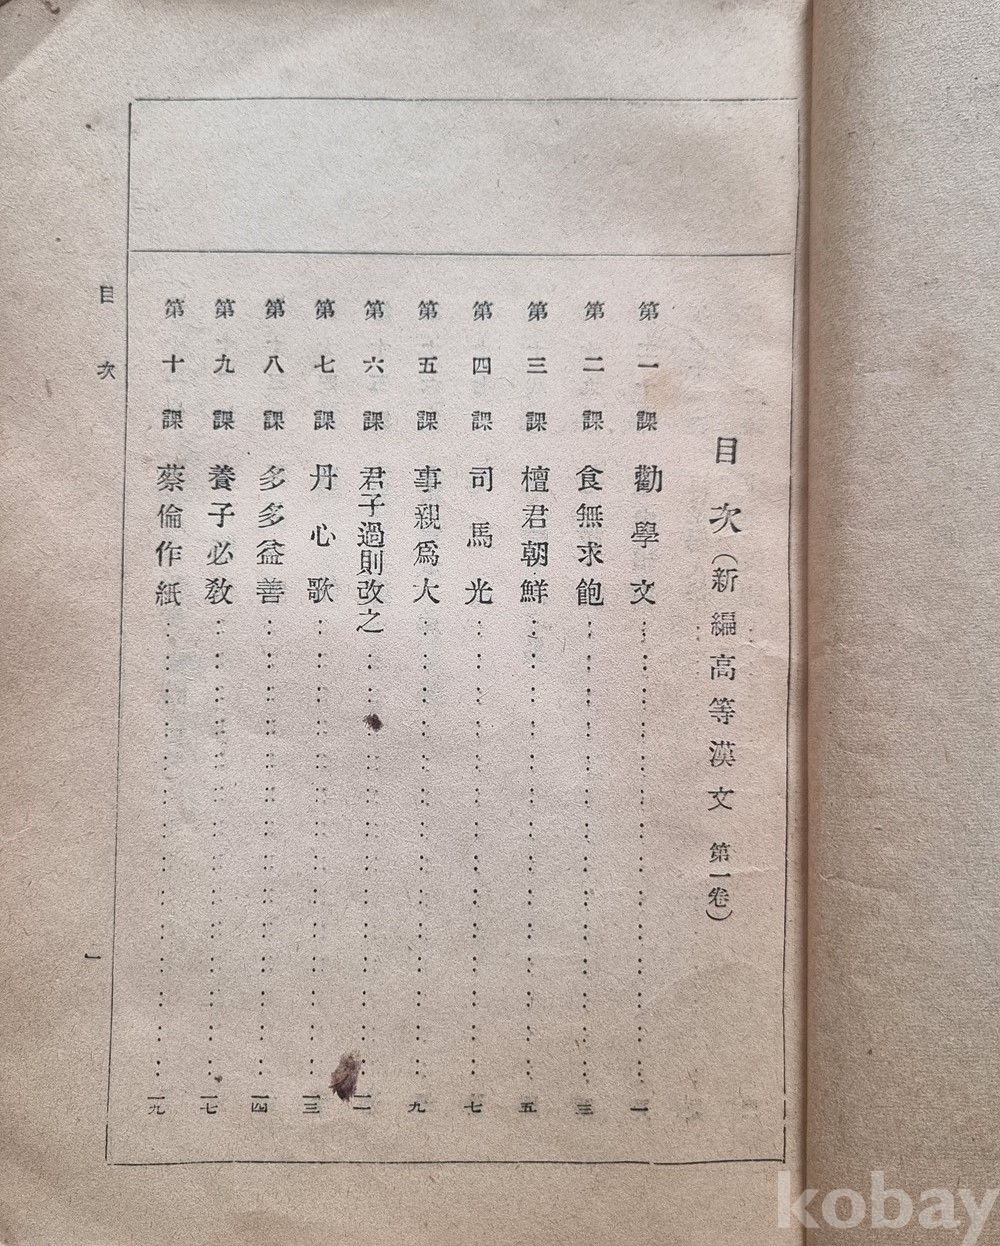 目次（新編高等漢文 第一卷）
第一課 勸學文 一
第二課 食無求飽 三
第三課 檀君朝鮮 五
第四課 司馬光 七
第五課 事親爲大 九
第六課 君子過則改之 一一
第七課 丹心歌 一三
第八課 多多益善 一四
第九課 養子必敎 一七
第十課 蔡倫作紙 一九
目次 一
kobay